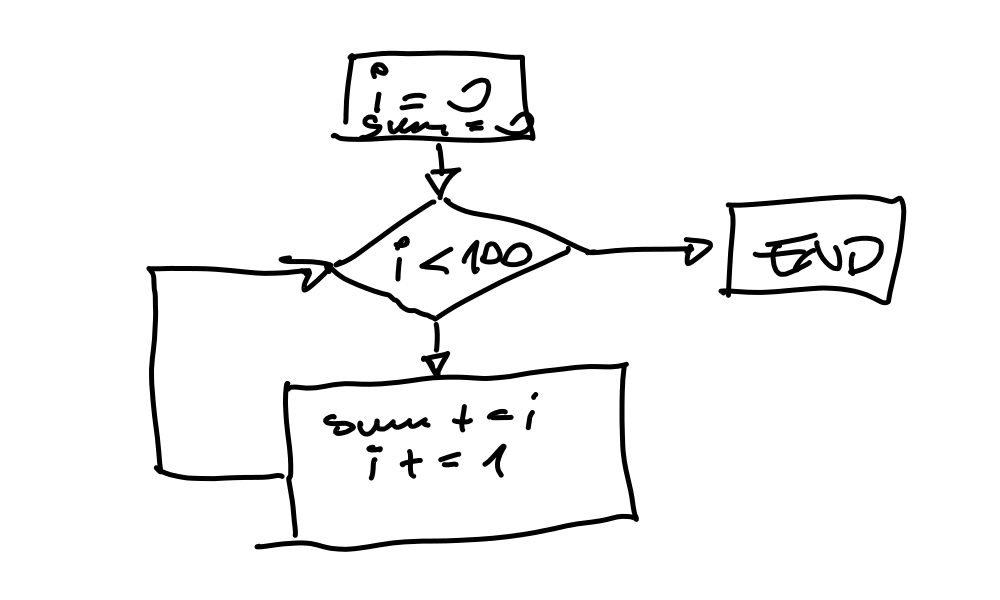 i = 0
sum = 0
i < 100
END
sum += i
i += 1